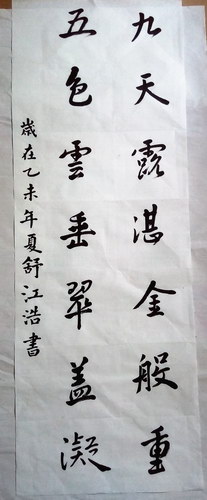 九天露湛金般重
五色雲垂翠蓋凝
歲在乙未年夏舒江浩書